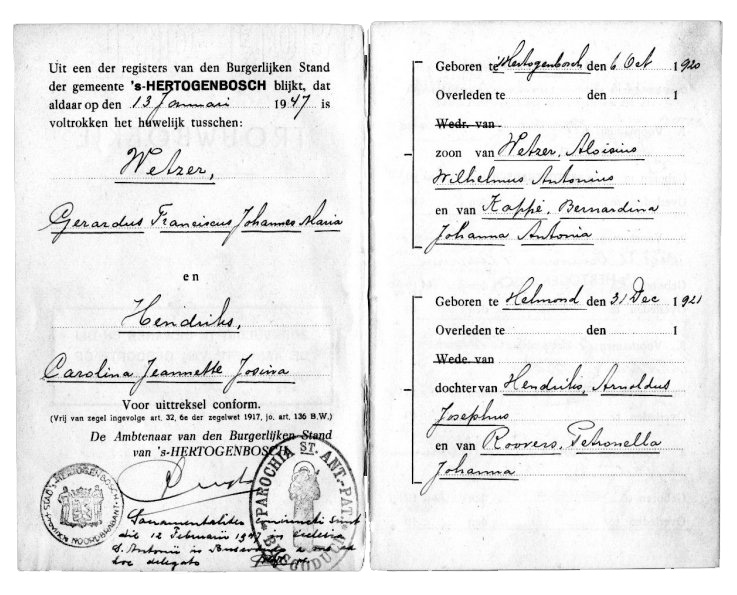 Uit een der registers van den Burgerlijken Stand
der gemeente 's-HERTOGENBOSCH blijkt, dat
aldaar op den 13 Januari 1947 is
voltrokken het huwelijk tusschen:
Wetzer,
Gerardus Franciscus Johannes Maria
en
Hendriks,
Carolina Jeannette Josina
Voor uittreksel conform.
(Vrij van zegel ingevolge art. 32, 6e der zegelwet 1917, jo. art. 136 B.W.)
De Ambtenaar van den Burgerlijken Stand
van 's-HERTOGENBOSCH
STAD 'S-HERTOGENBOSCH
NOORDBRABANT
PAROCHIA ST. ANT.-PAT.
Sacramentaliter conjuncti sunt
die 12 Februarii 1947 in ecclesia
S. Antonii in a me ad
hoc delegato
Geboren te 's Hertogenbosch den 6 Oct 1920
Overleden te den 1
Wedr. van
zoon van Wetzer, Aloisius
Wilhelmus Antonius
en van Kappé, Bernardina
Johanna Antonia
Geboren te Helmond den 31 Dec 1921
Overleden te den 1
Wede. van
dochter van Hendriks, Arnoldus
Josephus
en van Roovers, Petronella
Johanna